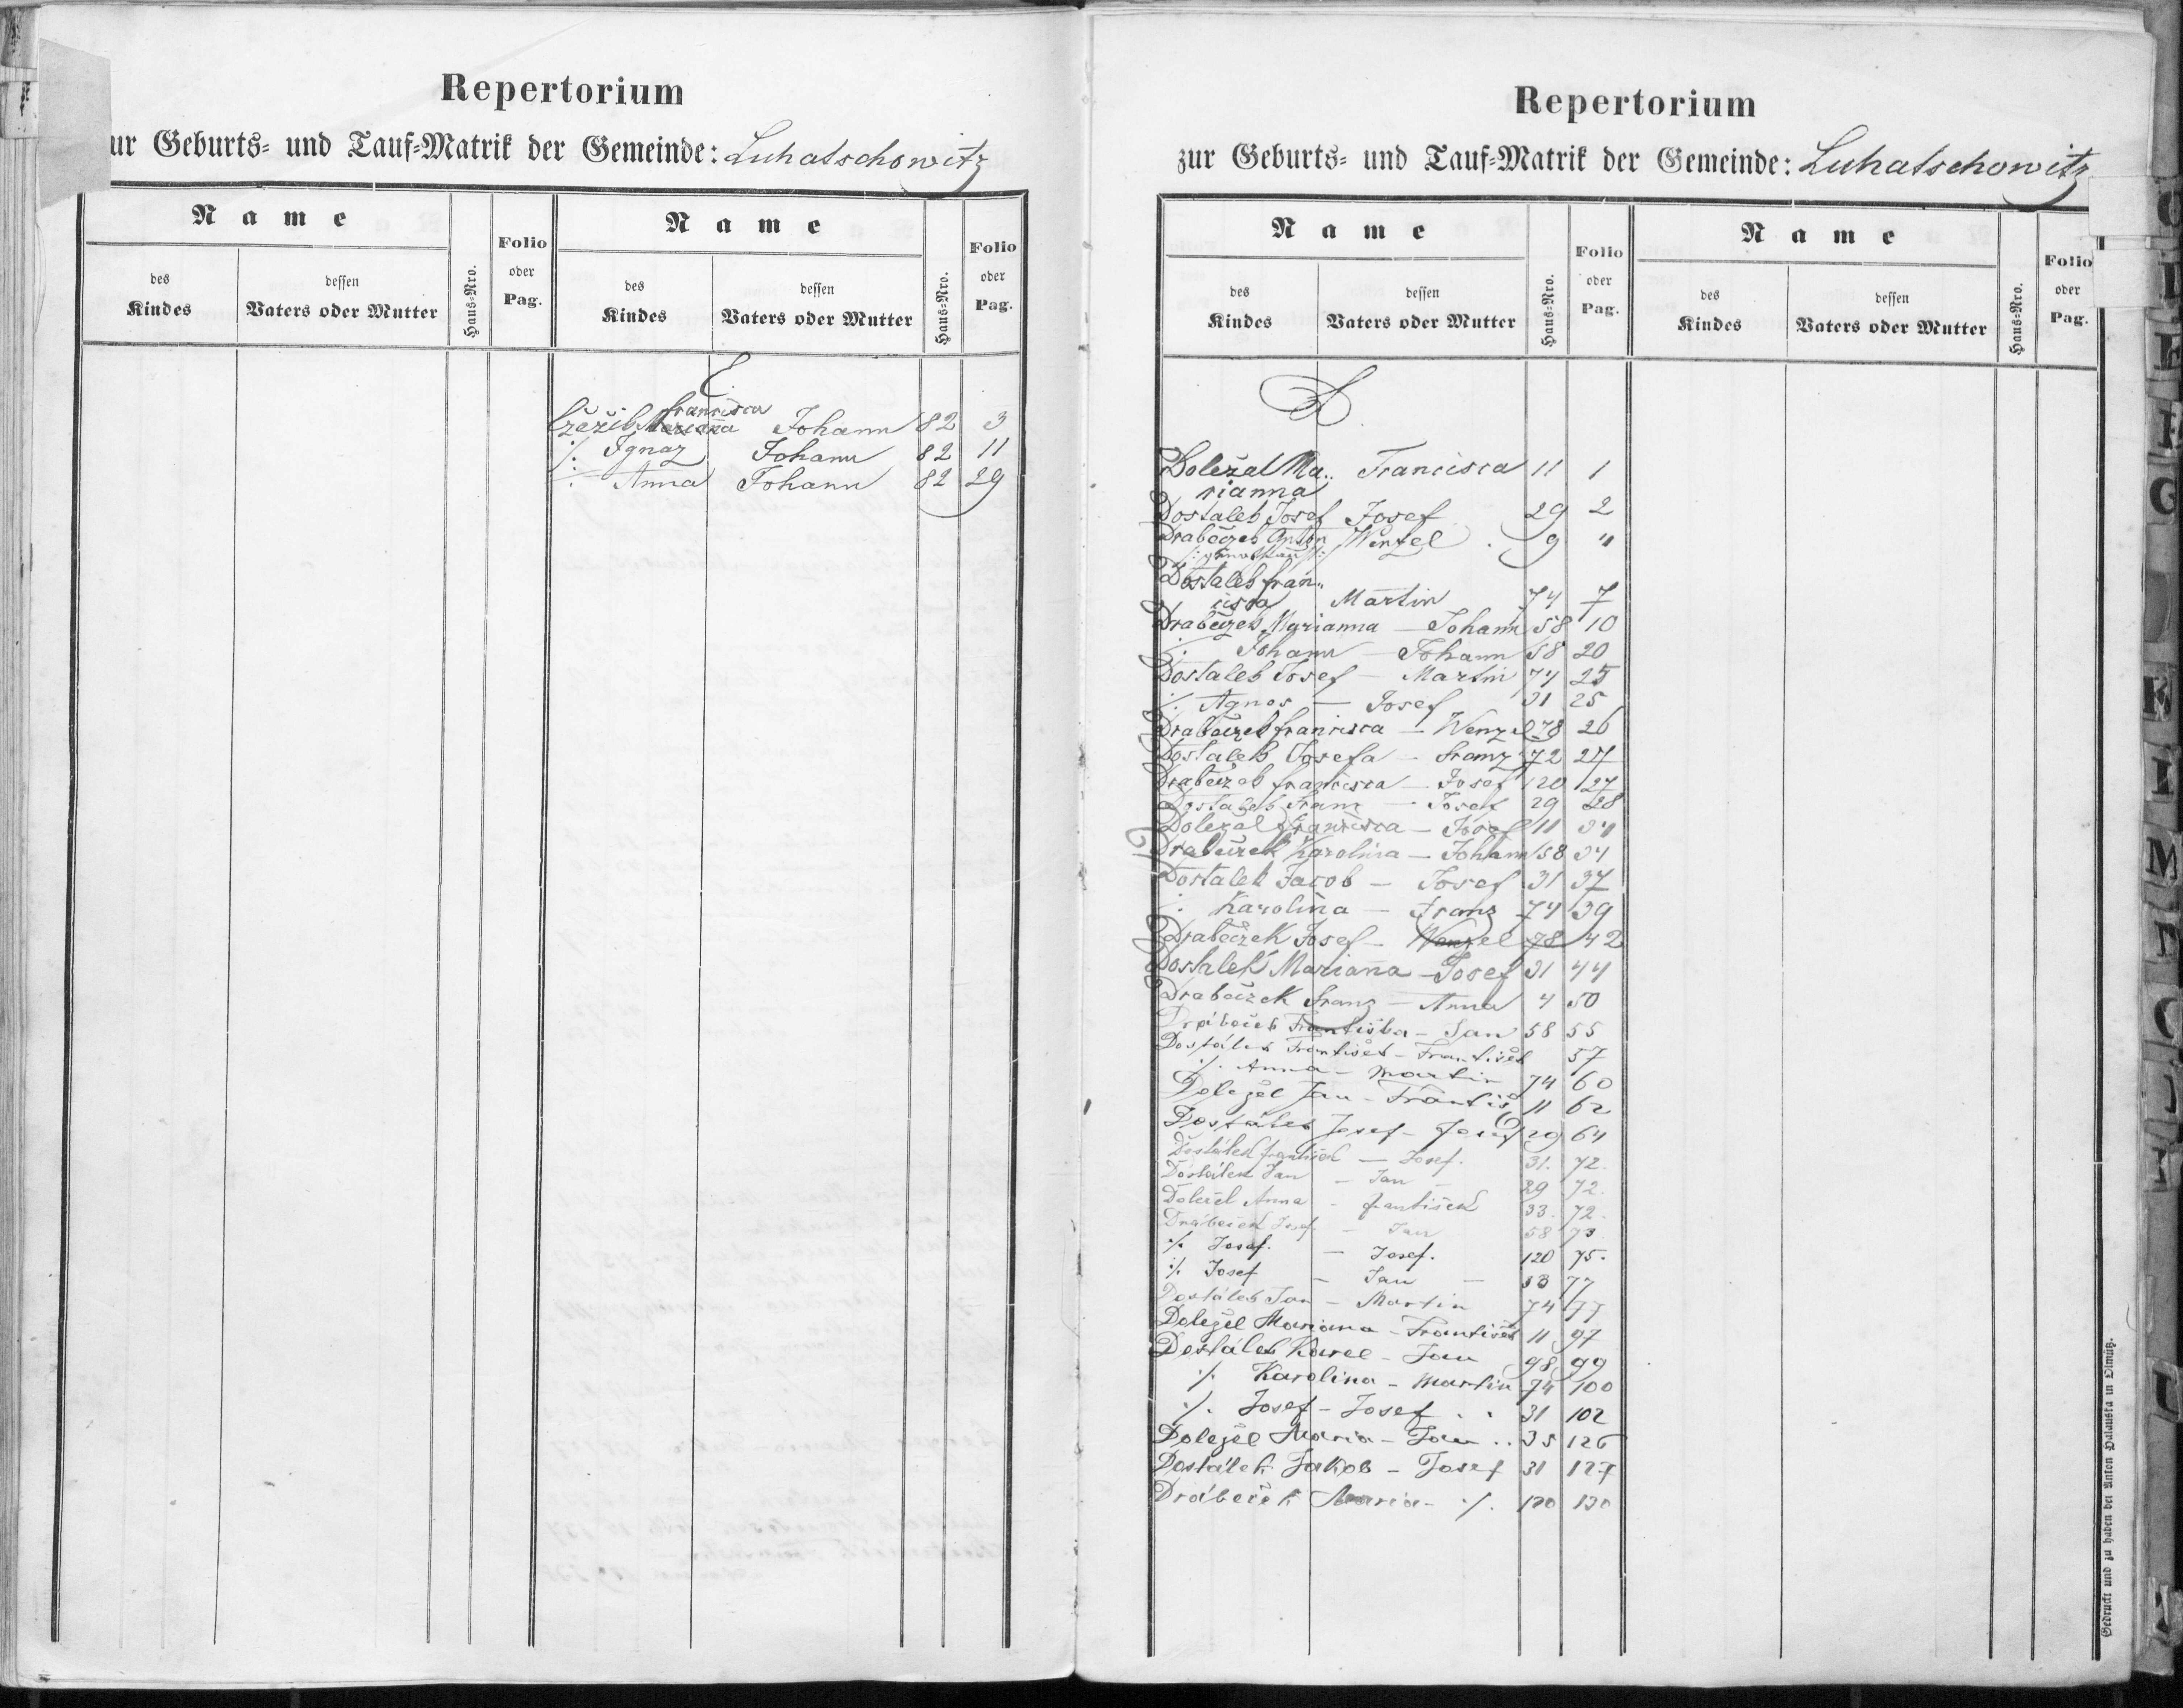 Repertorium
zur Geburts- und Tauf-Matrik der Gemeinde: Luhatschowitz
Name
des Kindes
dessen Vaters oder Mutter
Haus-Nro.
Folio oder Pag.
Name
des Kindes
dessen Vaters oder Mutter
Haus-Nro.
Folio oder Pag.
Francisca
Marianna Johann 82 3
·/. Ignaz Johann 82 11
·/. Anna Johann 82 29
Repertorium
zur Geburts- und Tauf-Matrik der Gemeinde: Luhatschowitz
Name
des Kindes
dessen Vaters oder Mutter
Haus-Nro.
Folio oder Pag.
Name
des Kindes
dessen Vaters oder Mutter
Haus-Nro.
Folio oder Pag.
D
Doležal Ma.. Francisca 11 1
rianna
Dostalek Josef Josef 29 2
Drabeczek Anton Wenzel 9 "
Dostalek Fran..
cisca Martin 74 7
Drabeczek Marianna — Johann 58 10
·/. Johann — Johann 58 20
Dostalek Josef — Martin 74 25
·/. Agnes — Josef 31 25
Drabeczek Francisca — Wenzel 78 26
Dostalek Josefa — Franz 72 27
Drabeczek Francisca — Josef 120 27
Dostalek Franz — Josef 29 28
Doležal Francisca — Josef 11 34
Drabeczek Karolina — Johann 58 34
Dostalek Jacob — Josef 31 37
·/. Karolina — Franz 74 39
Drabeczek Josef — Wenzel 78 42
Dostalek Marianna — Josef 31 44
Drabeczek Franz — Anna 4 50
Drábeček Františka — Jan 58 55
Dostálek František — František 57
·/. Anna — Martin 74 60
Doležel Jan — Františ 11 62
Dostálek Josef — Josef 29 64
Dostálek František — Josef. 31. 72.
Dostálek Jan — Jan — 29 72.
Doležel Anna — František 33. 72.
Drábeček Josef — Jan 58 73
·/. Josef. — Josef. 120 75.
·/. Josef — Jan — 58 77
Dostálek Jan — Martin 74 77
Doležel Mariana — František 11 97
Dostálek Karel — Jan 98 99
·/. Karolina — Martin 74 100
·/. Josef — Josef . . 31 102
Doležel Maria — Jan .. 35 126
Dostálek Jakob — Josef 31 127
Drábeček Maria — ·/. 120 130
Gedruckt und zu haben bei Anton Halauska in Olmütz.